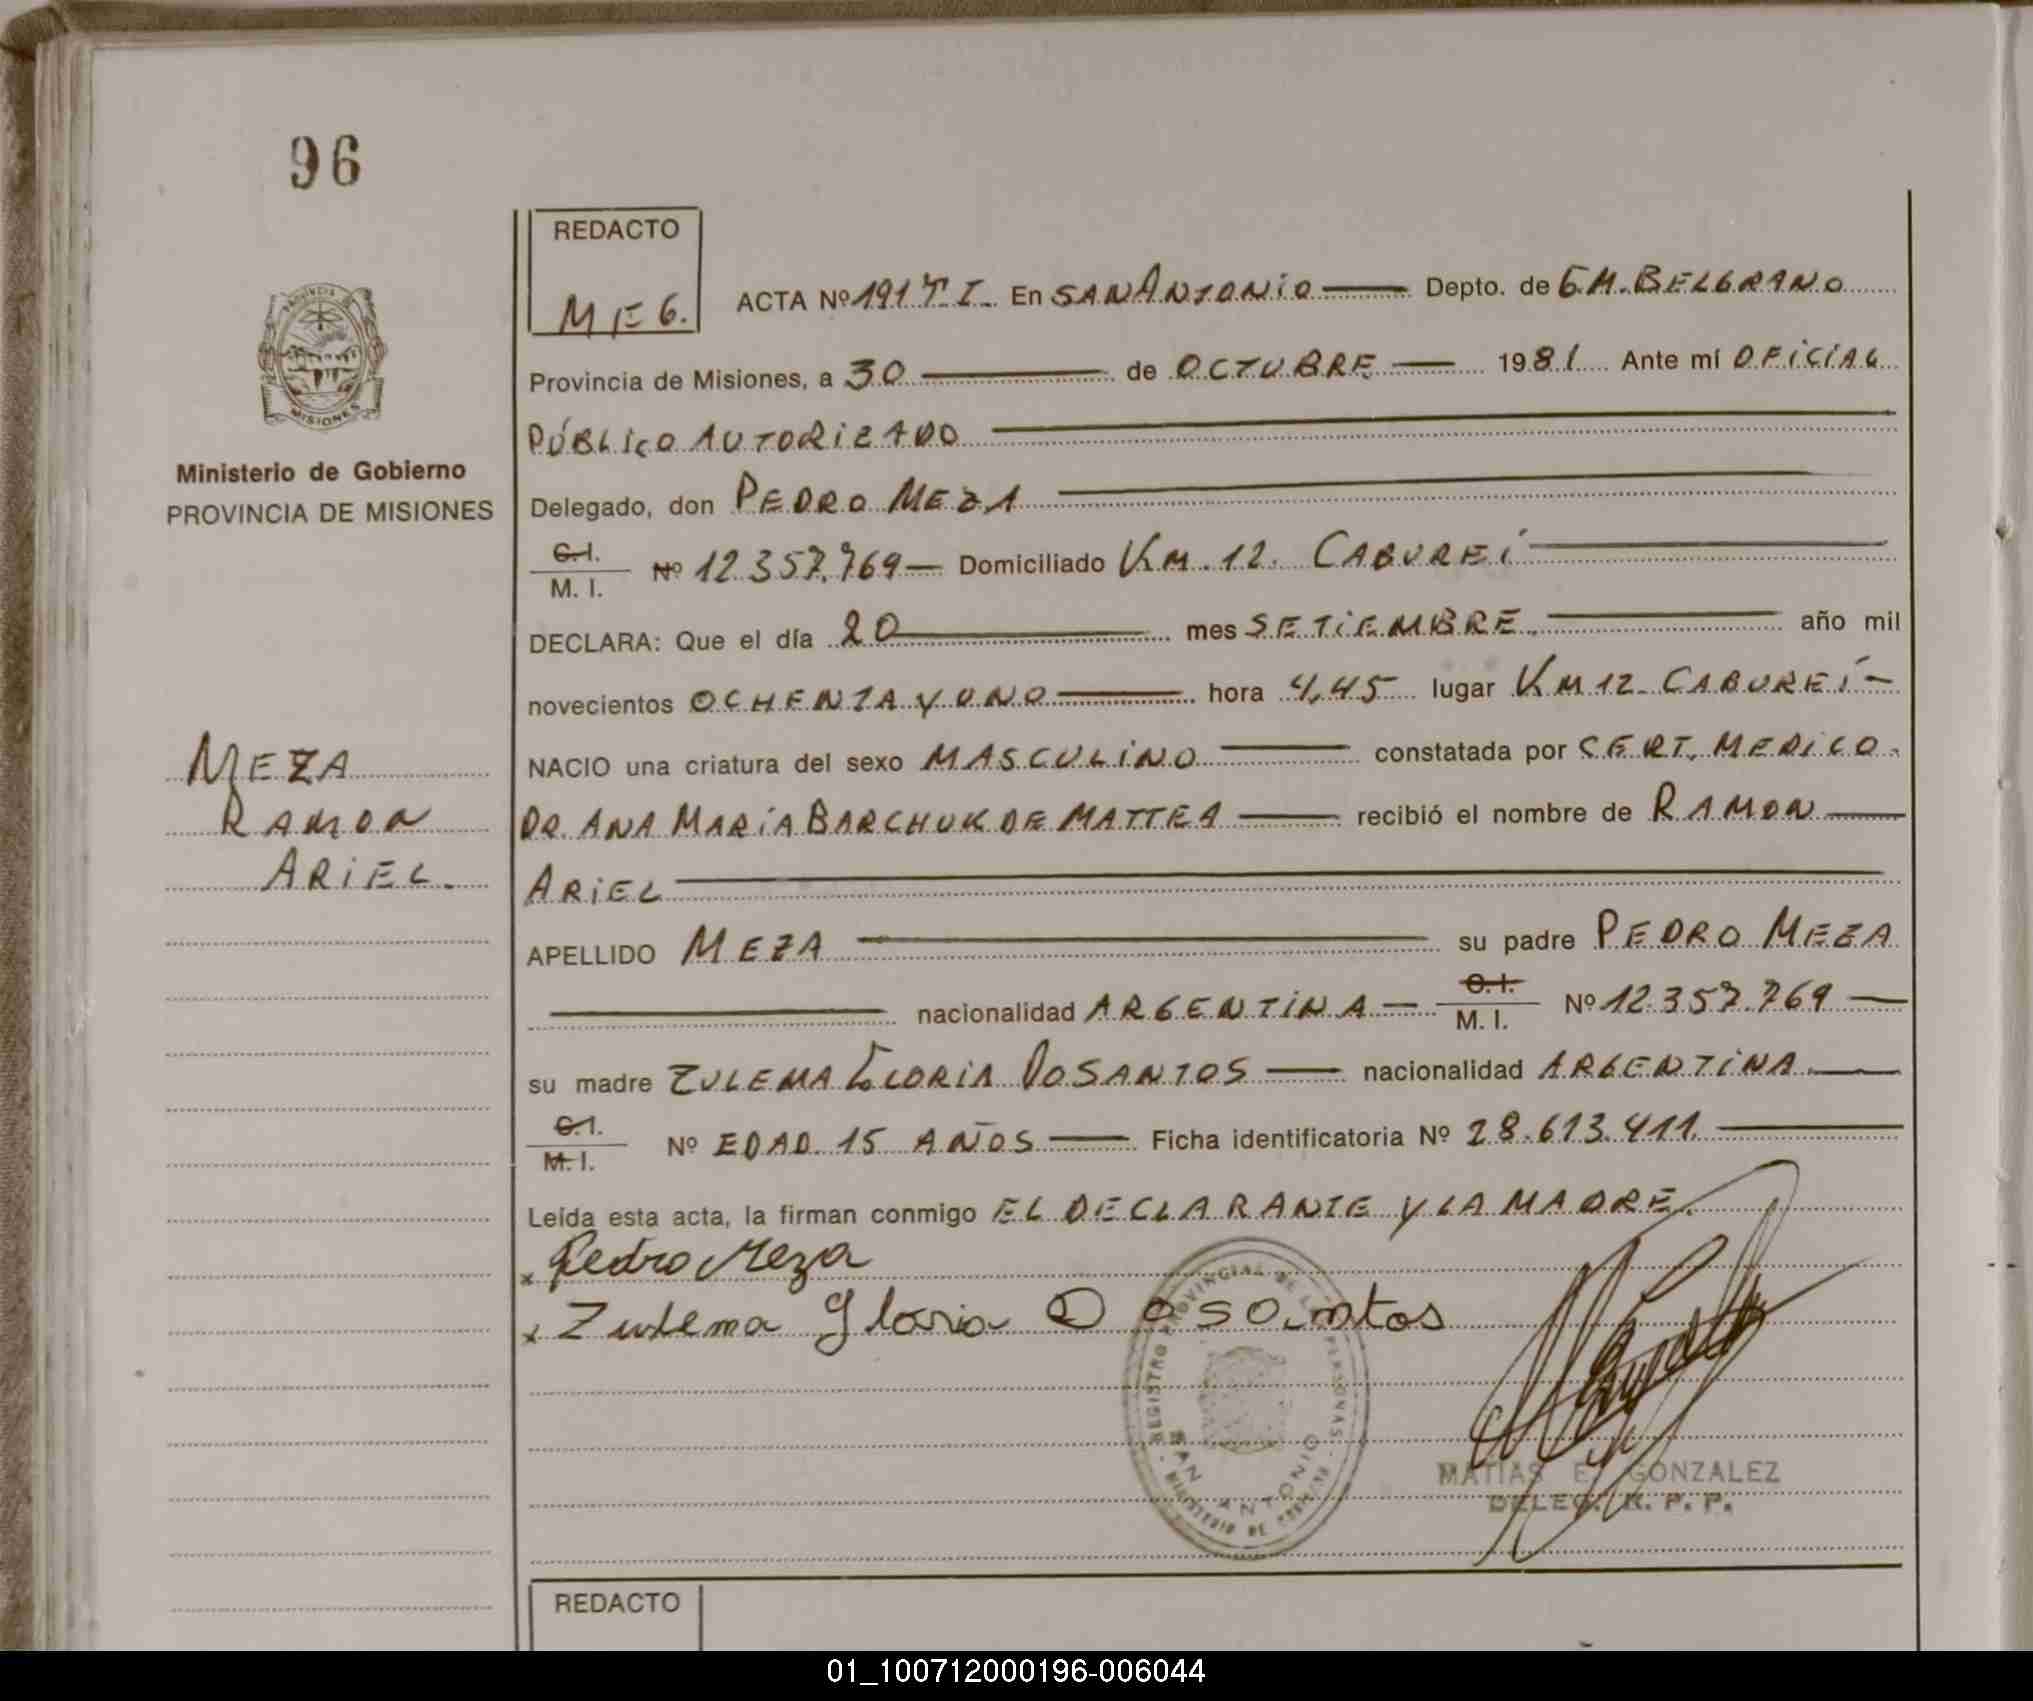 96
REDACTO
M E G.
ACTA Nº 191 T I. En SAN ANTONIO Depto. de G.M. BELGRANO
Provincia de Misiones, a 30 de OCTUBRE 1981 Ante mí OFICIAL
PÚBLICO AUTORIZADO
Ministerio de Gobierno
PROVINCIA DE MISIONES
Delegado, don PEDRO MEZA
C.I.
M. I. Nº 12.357.769 Domiciliado KM. 12. CABUREÍ
DECLARA: Que el día 20 mes SETIEMBRE. año mil
novecientos OCHENTA Y UNO hora 4,45 lugar KM 12 CABUREÍ
MEZA
RAMON
ARIEL.
NACIO una criatura del sexo MASCULINO constatada por CERT. MEDICO
DR. ANA MARÍA BARCHUK DE MATTEA recibió el nombre de RAMON
ARIEL
APELLIDO MEZA su padre PEDRO MEZA
nacionalidad ARGENTINA C.I. M. I. Nº 12.357.769
su madre ZULEMA GLORIA DOSANTOS nacionalidad ARGENTINA
C.I.
M.I. Nº EDAD 15 AÑOS Ficha identificatoria Nº 28.613.411
Leída esta acta, la firman conmigo EL DECLARANTE Y LA MADRE.
x Pedro Meza
x Zulema Gloria Dosantos
REGISTRO PROVINCIAL DE LAS PERSONAS
SAN ANTONIO
MINISTERIO DE GOBIERNO
MATIAS E. GONZALEZ
DELEG. R. P. P.
REDACTO
01_100712000196-006044